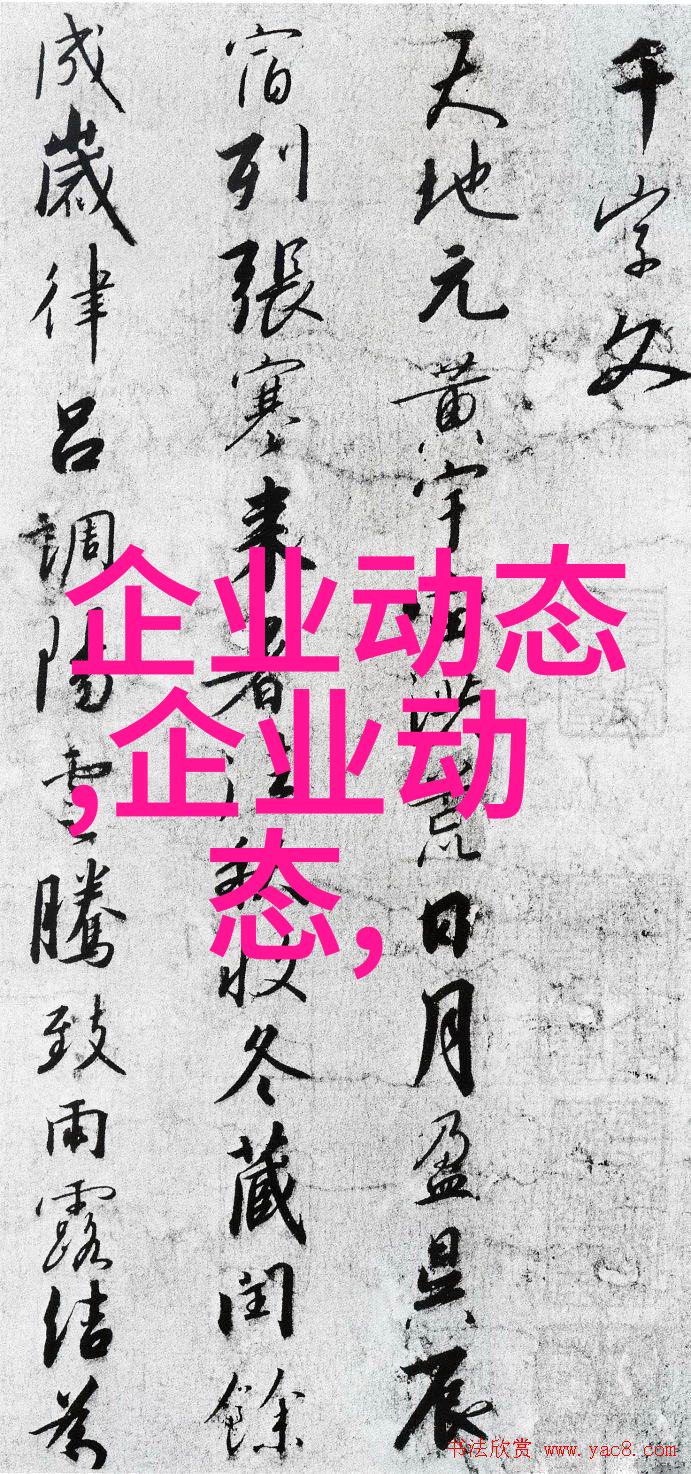 千字文
天地元黄宇宙洪荒日月盈昃辰
宿列張寒来暑往秋收冬藏閏餘
成歲律吕調陽雲騰致雨露結為
企业动态
,企业动
态,
书法欣赏 www.yac8.com